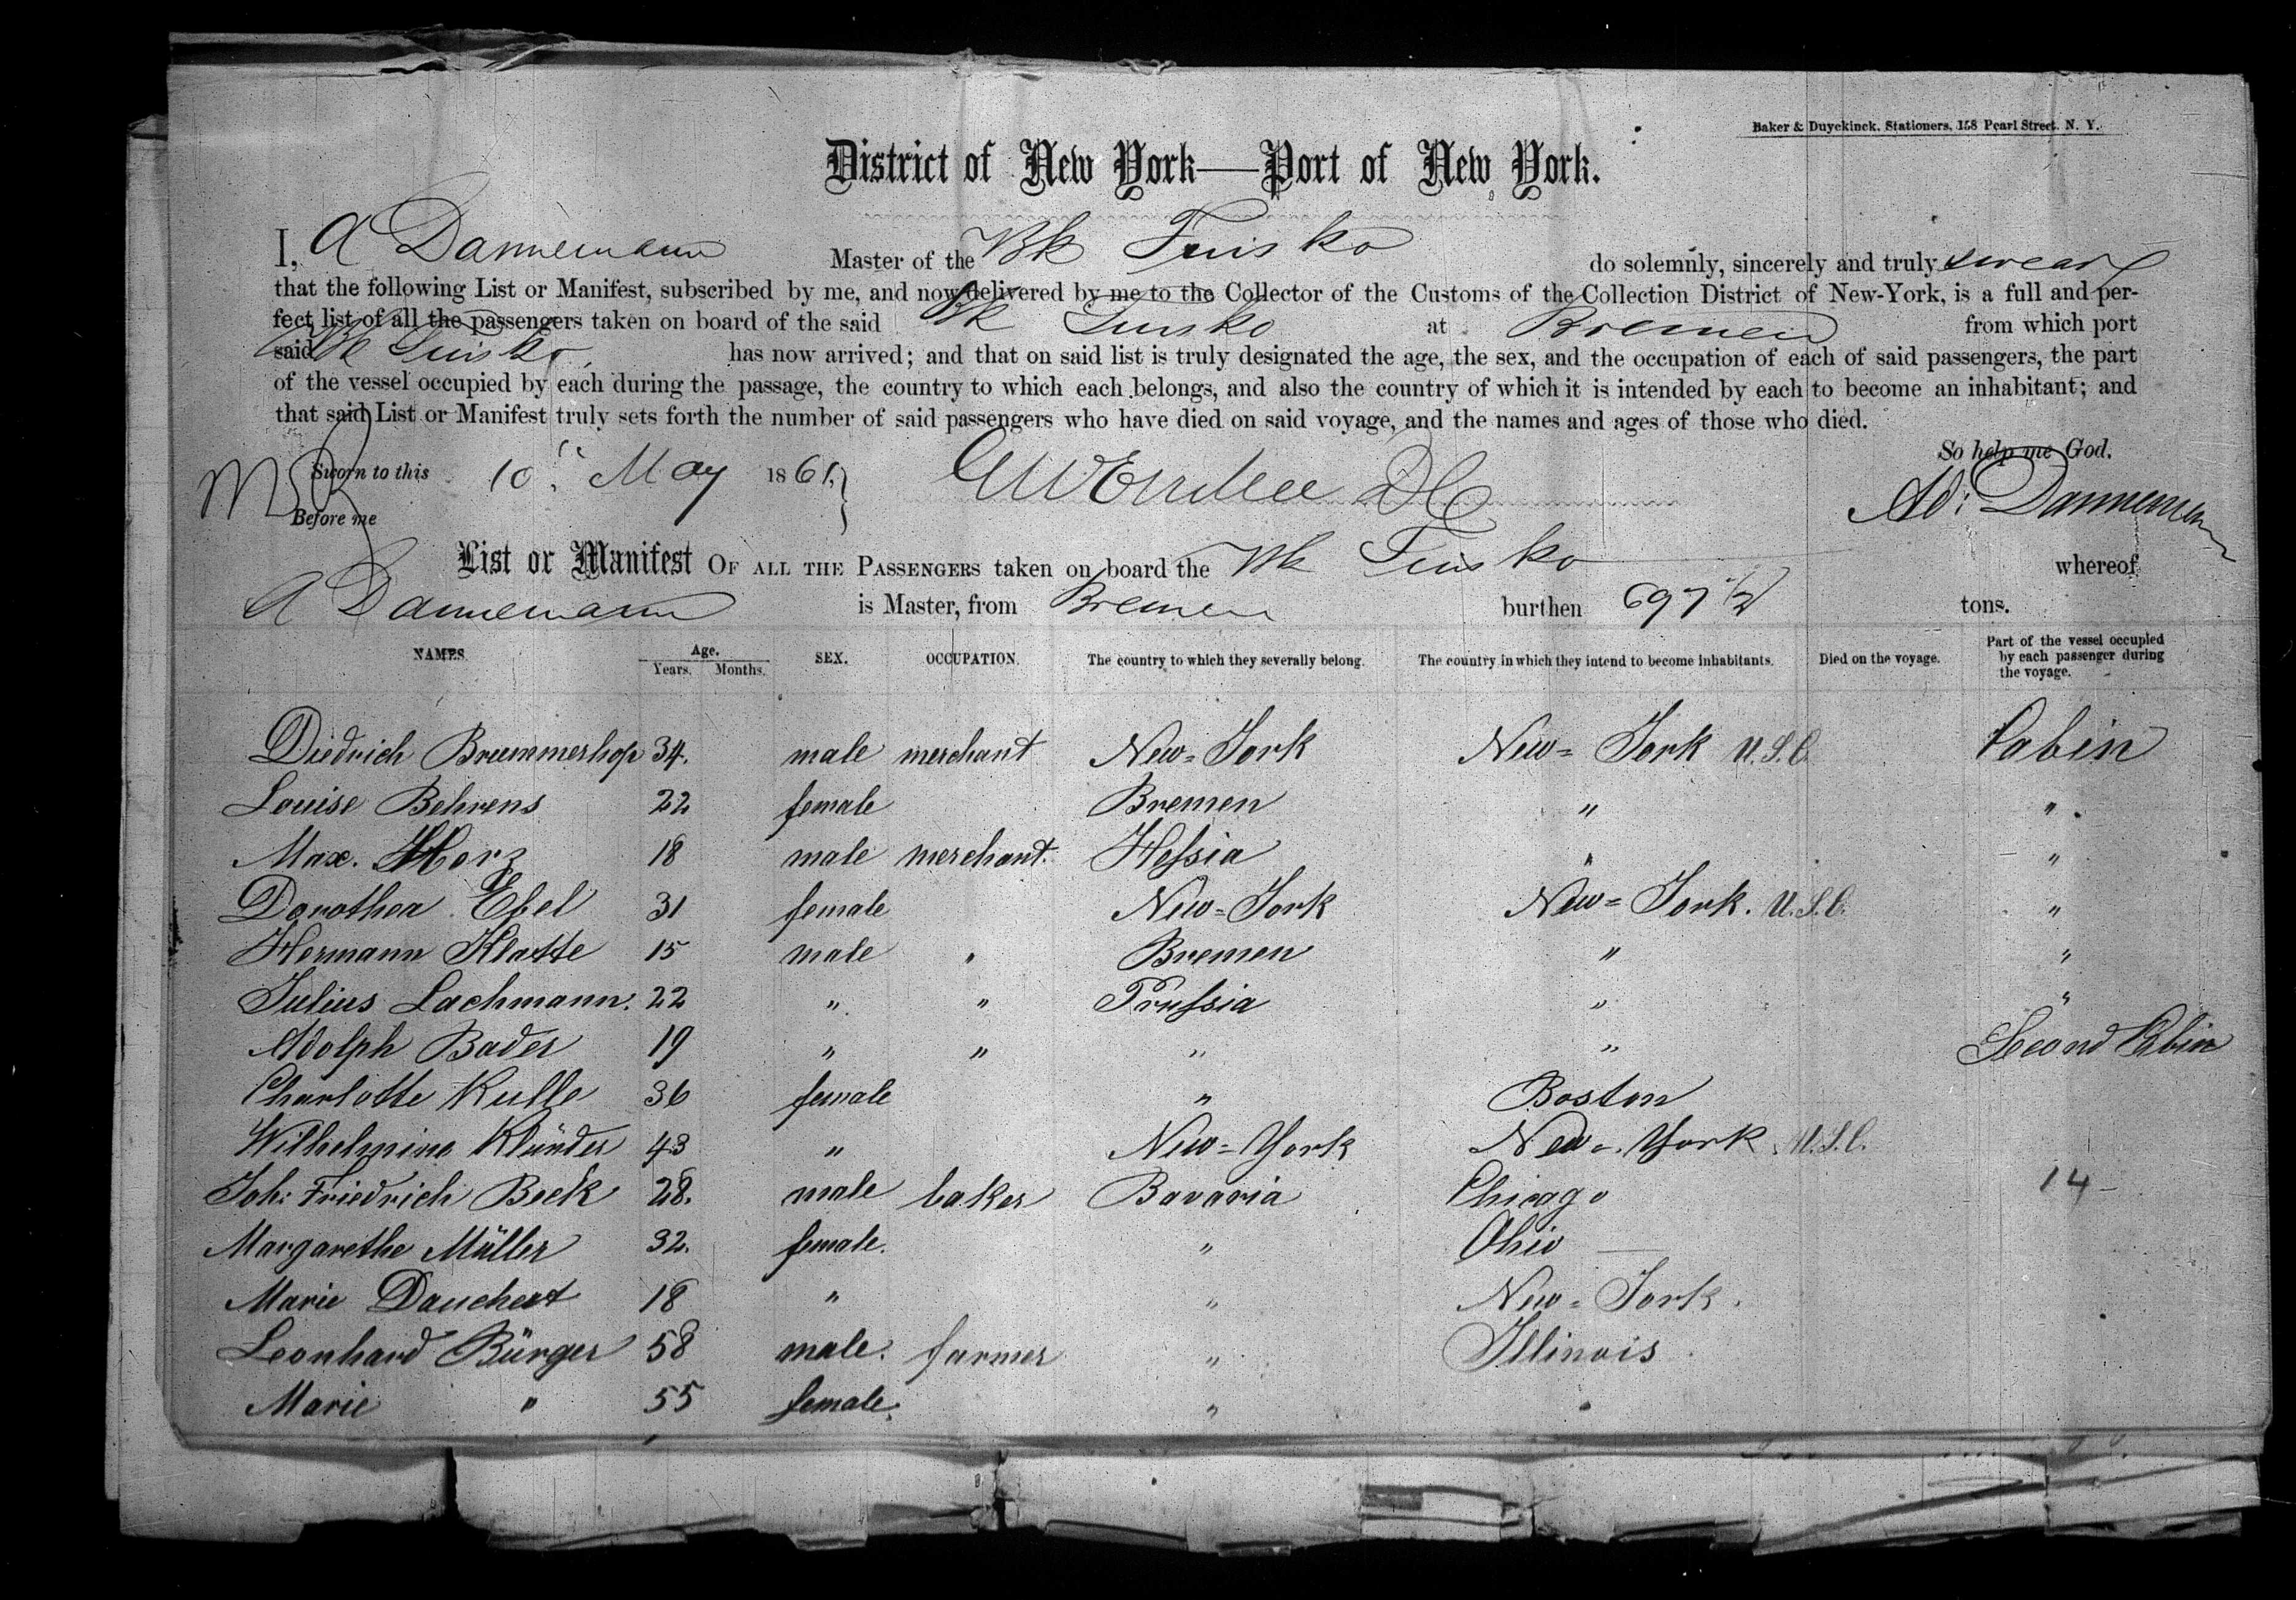 Baker & Duyckinck, Stationers, 158 Pearl Street, N. Y.
District of New York—Port of New York.
I, A Dannemann Master of the Bk Tuisko do solemnly, sincerely and truly swear
that the following List or Manifest, subscribed by me, and now delivered by me to the Collector of the Customs of the Collection District of New-York, is a full and per-
fect list of all the passengers taken on board of the said Bk Tuisko at Bremen from which port
said Bk Tuisko has now arrived; and that on said list is truly designated the age, the sex, and the occupation of each of said passengers, the part
of the vessel occupied by each during the passage, the country to which each belongs, and also the country of which it is intended by each to become an inhabitant; and
that said List or Manifest truly sets forth the number of said passengers who have died on said voyage, and the names and ages of those who died.
So help me God.
Sworn to this 10th May 1861.
Before me
Ad: Dannemann
List or Manifest OF ALL THE PASSENGERS taken on board the Bk Tuisko whereof
A Dannemann is Master, from Bremen burthen 697 1/2 tons.
NAMES. Age. Years. Months. SEX. OCCUPATION. The country to which they severally belong. The country in which they intend to become inhabitants. Died on the voyage. Part of the vessel occupied by each passenger during the voyage.
Diedrich Brummerhop 34. male merchant New=York New=York U.S.C. Cabin
Louise Behrens 22 female Bremen " "
Max. Horz 18 male merchant. Hessia " "
Dorothea Ebel 31 female New=York New=York. U.S.C. "
Hermann Klatte 15 male " Bremen " "
Julius Lachmann. 22 " " Prussia " "
Adolph Bader 19 " " " " Second Cabin
Charlotte Kulle 36 female " Boston
Wilhelmine Klünder 43 " New=York New=York U.S.C.
Joh: Friedrich Beck 28. male baker Bavaria Chicago 14
Margarethe Müller 32. female. " Ohio
Marie Dauchert 18 " " New=York.
Leonhard Bürger 58 male. farmer " Illinois
Marie " 55 female. " "